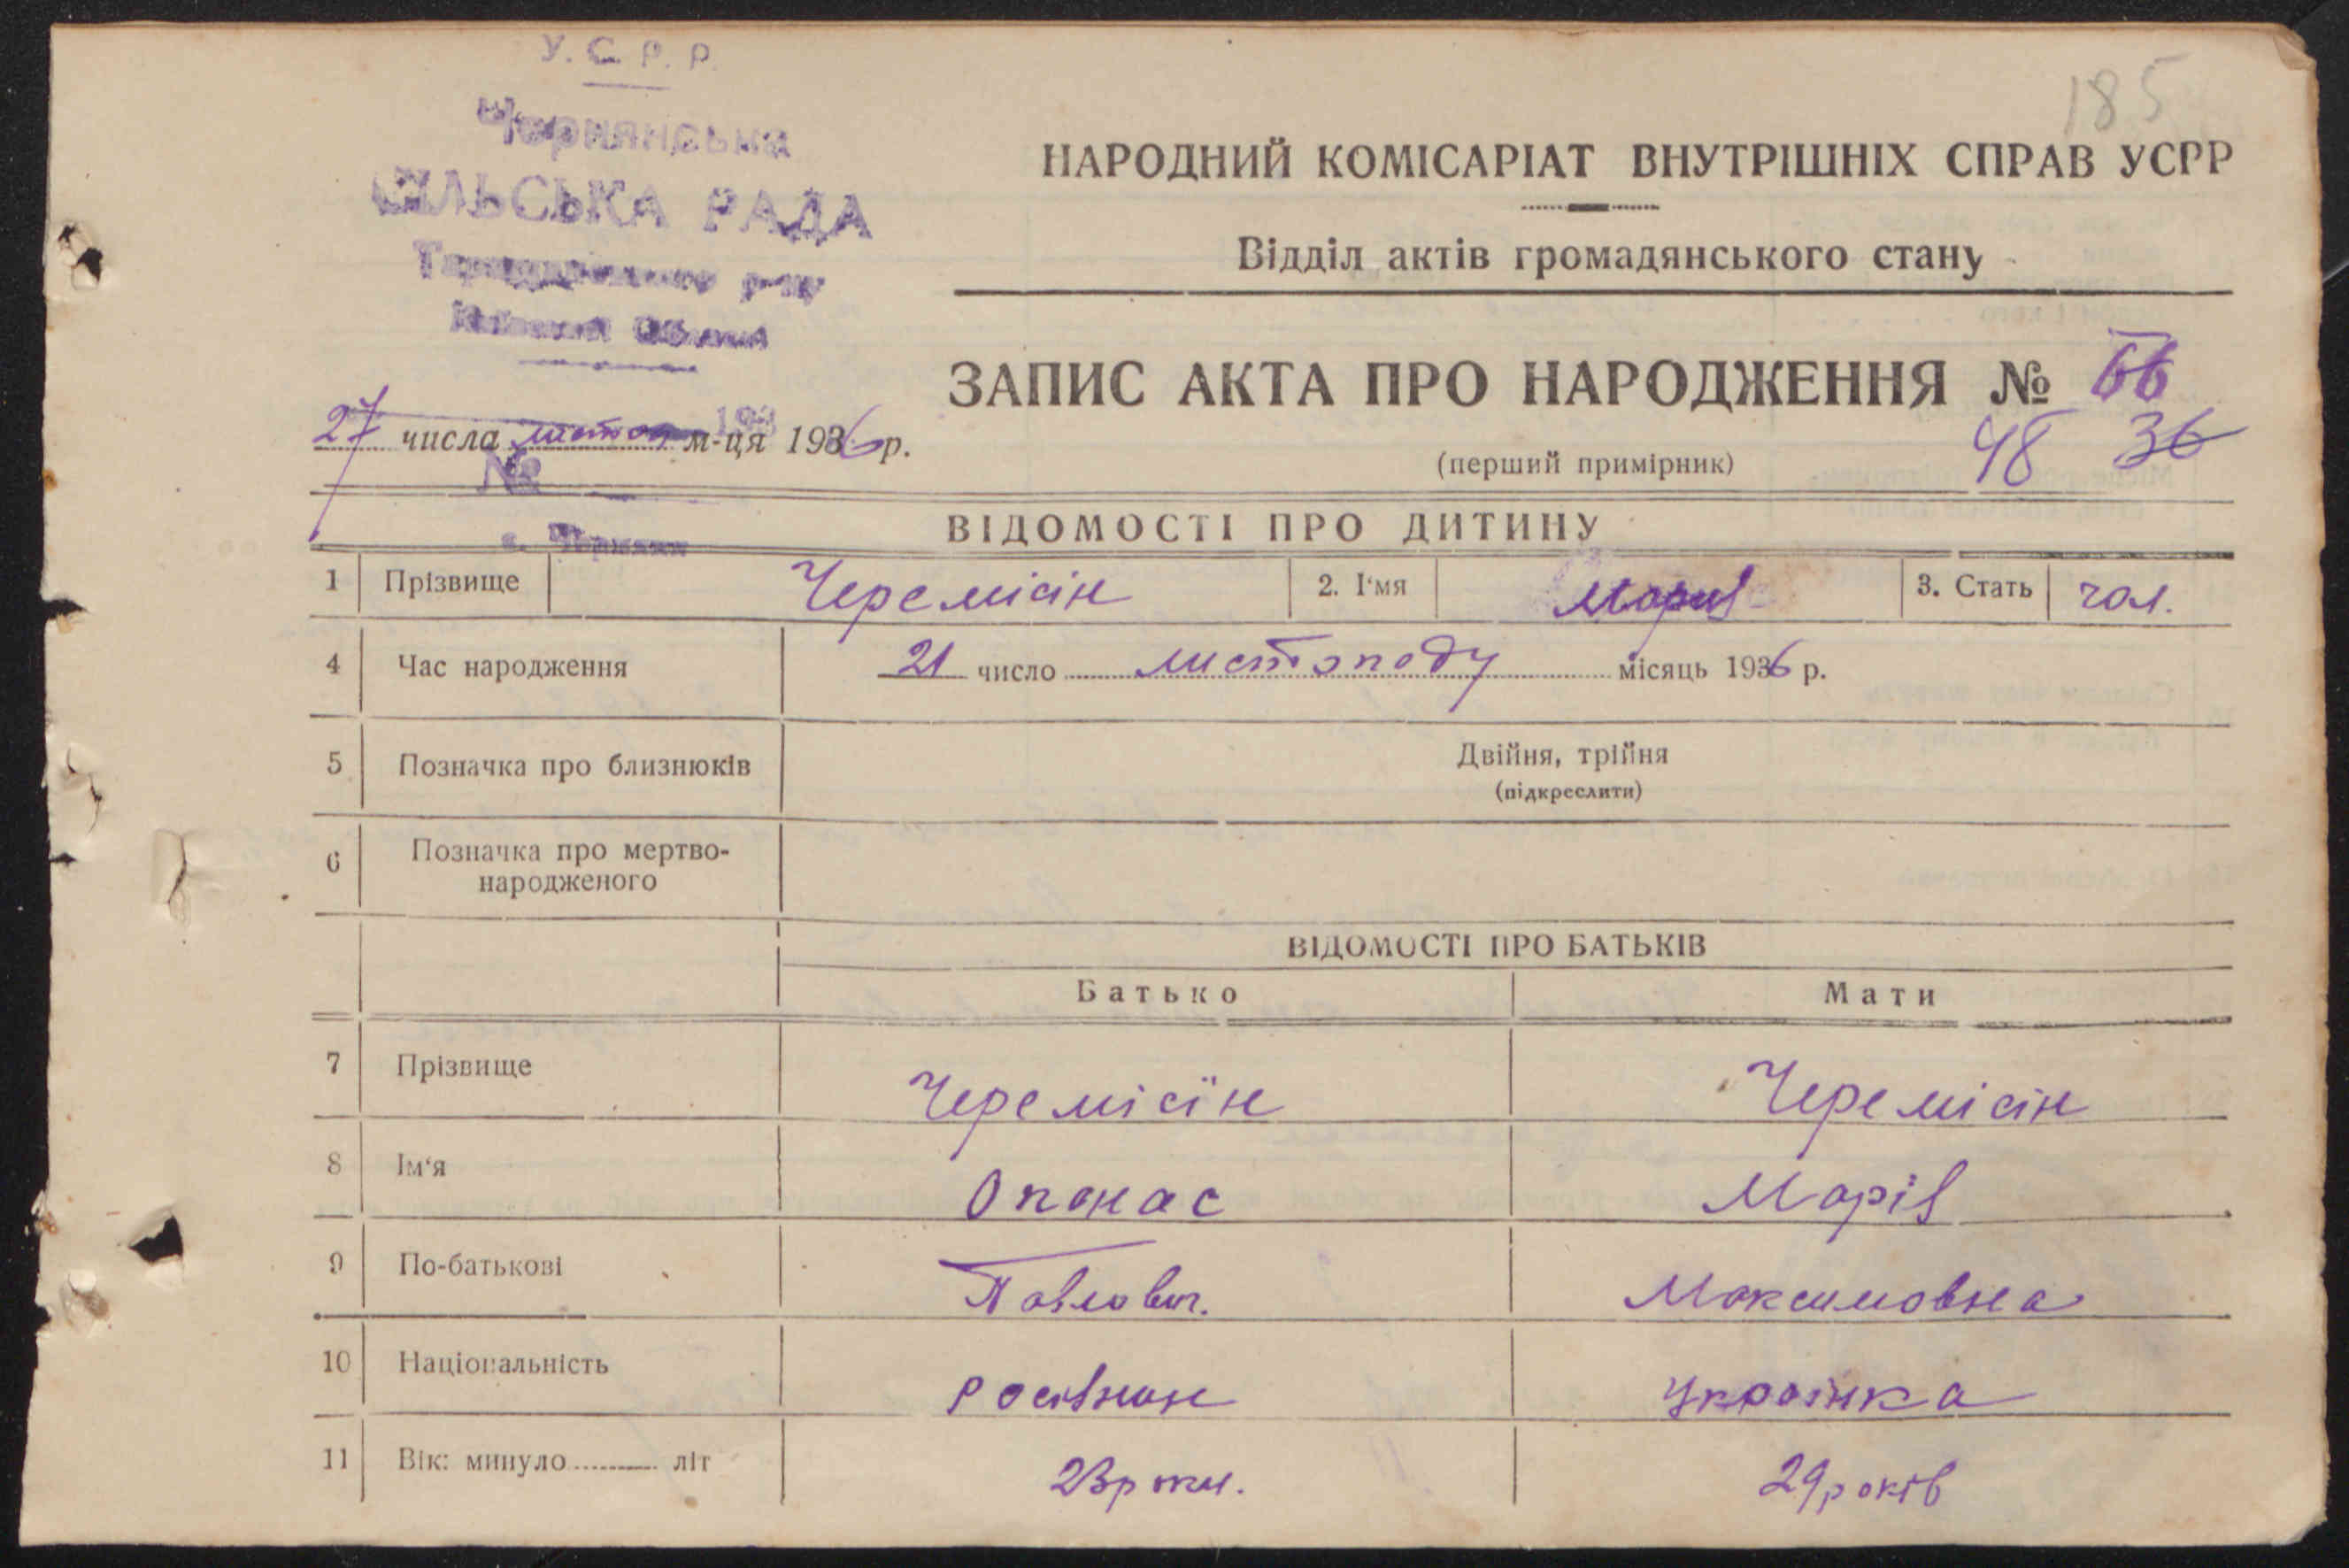 185
У.С.Р.Р.
Чернянська
СІЛЬСЬКА РАДА
р-ну
НАРОДНИЙ КОМІСАРІАТ ВНУТРІШНІХ СПРАВ УСРР
Відділ актів громадянського стану
ЗАПИС АКТА ПРО НАРОДЖЕННЯ № 66
27 числа листоп м-ця 1936 р.
193
№
(перший примірник) 48 36
ВІДОМОСТІ ПРО ДИТИНУ
1 Прізвище Черемісін 2. І'мя Мария 3. Стать чол.
4 Час народження 21 число листопаду місяць 1936 р.
5 Позначка про близнюків Двійня, трійня
(підкреслити)
6 Позначка про мертво-
народженого
ВІДОМОСТІ ПРО БАТЬКІВ
Батько Мати
7 Прізвище Черемісін Черемісін
8 Ім'я Опанас Марія
9 По-батькові Павлович. Максимовна
10 Національність росіянин українка
11 Вік: минуло ........ літ 23 роки. 29 років